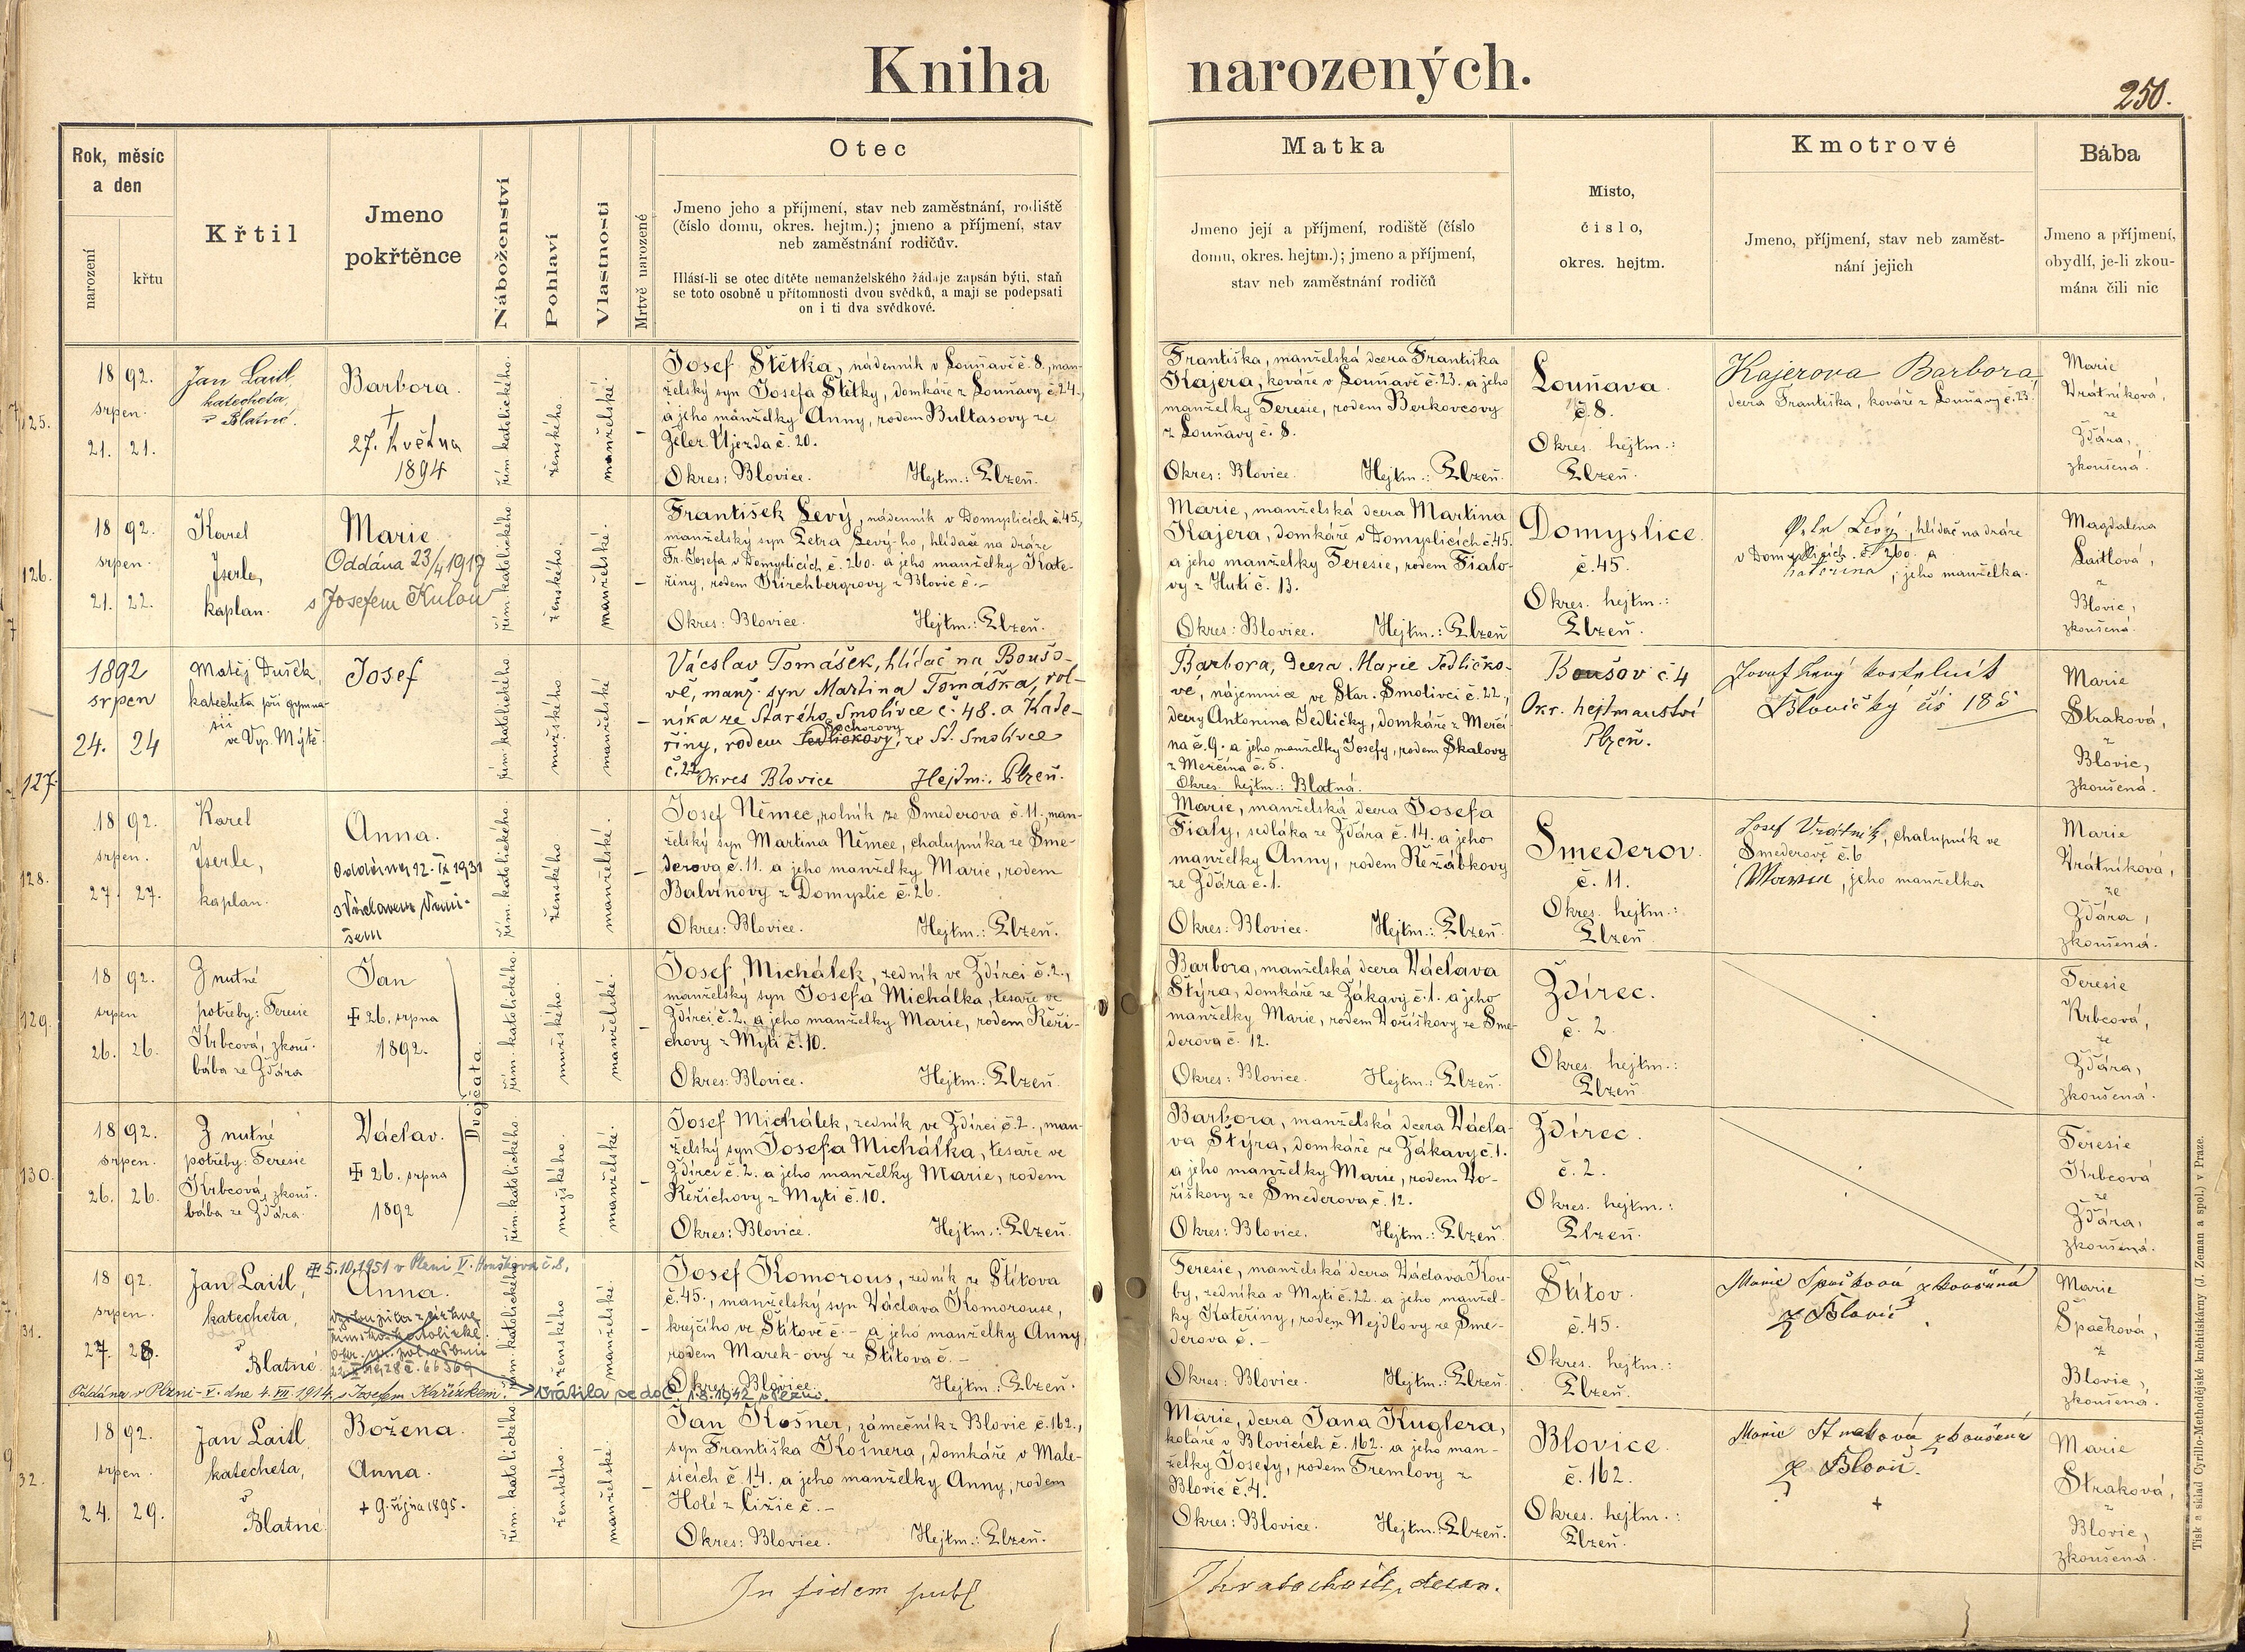 Kniha narozených.
250.
Rok, měsíc
a den
narození
křtu
Křtil
Jmeno
pokřtěnce
Náboženství
Pohlaví
Vlastnosti
Mrtvě narozené
Otec
Jmeno jeho a příjmení, stav neb zaměstnání, rodiště
(číslo domu, okres. hejtm.); jmeno a příjmení, stav
neb zaměstnání rodičův.
Hlásí-li se otec dítěte nemanželského žádaje zapsán býti, staň
se toto osobně u přítomnosti dvou svědků, a mají se podepsati
on i ti dva svědkové.
Matka
Jmeno její a příjmení, rodiště (číslo
domu, okres. hejtm.); jmeno a příjmení,
stav neb zaměstnání rodičů
Místo,
číslo,
okres. hejtm.
Kmotrové
Jmeno, příjmení, stav neb zaměst-
nání jejich
Bába
Jmeno a příjmení,
obydlí, je-li zkou-
mána čili nic
125.
18 92.
srpen.
21. 21.
Jan Laitl,
katecheta,
z Blatné.
Barbora.
†
27. května
1894
řím. katolického.
ženského.
manželské.
Josef Štětka, nádenník v Louňavě č. 8., man-
želský syn Josefa Štětky, domkáře z Louňavy č. 24.,
a jeho manželky Anny, rodem Bultasovy ze
Želez. Újezda č. 20.
Okres: Blovice. Hejtm.: Plzeň.
Františka, manželská dcera Františka
Kajera, kováře v Louňavě č. 23. a jeho
manželky Teresie, rodem Berkovcovy
z Louňavy č. 8.
Okres: Blovice. Hejtm.: Plzeň.
Louňava.
č. 8.
Okres. hejtm.:
Plzeň.
Kajerova Barbora
dcera Františka, kováře z Louňavy č. 23.
Marie
Vrátníková,
ze
Žďára,
zkoušená.
126.
18 92.
srpen.
21. 22.
Karel
Jserle,
kaplan.
Marie
Oddána 23/4 1917
s Josefem Kulou
řím. katolického
ženského.
manželské.
František Levý, nádenník v Domyslicích č. 45.,
manželský syn Petra Levý-ho, hlídače na dráze
Fr. Josefa v Domyslicích č. 260. a jeho manželky Kate-
řiny, rodem Kirchbergrovy z Blovic č. –
Okres: Blovice. Hejtm.: Plzeň.
Marie, manželská dcera Martina
Kajera, domkáře v Domyslicích č. 45.
a jeho manželky Teresie, rodem Fialo-
vy z Huti č. 13.
Okres: Blovice. Hejtm.: Plzeň
Domyslice.
č. 45.
Okres. hejtm.:
Plzeň.
Petr Levý, hlídač na dráze
v Domyslicích č. 260. a
Kateřina, jeho manželka.
Magdalena
Laitlová,
z
Blovic,
zkoušená.
127.
1892
srpen
24. 24
Matěj Dušek,
katecheta při gymna-
sii
ve Vys. Mýtě.
Josef
řím. katolického
mužského
manželské
Václav Tomášek, hlídač na Boušo-
vě, manž. syn Martina Tomáška, rol-
níka ze Starého Smolivce č. 48. a Kate-
řiny, rodem Jedličkovy, ze St. Smolivce
č. 22 Okres Blovice Hejtm.: Plzeň.
Barbora, dcera Marie Jedličko-
vé, nájemnice ve Star. Smolivci č. 22.,
dcery Antonína Jedličky, domkáře z Merčí-
na č. 9. a jeho manželky Josefy, rodem Skalovy
z Merčína č. 5.
Okres. hejtm.: Blatná.
Boušov č. 4
Okr. hejtmanství
Plzeň.
Josef Levý kostelník
Blovický čís 185
Marie
Straková,
z
Blovic,
zkoušená.
128.
18 92.
srpen.
27. 27.
Karel
Jserle,
kaplan.
Anna.
Oddána 12. IX 1931
s Václavem
řím. katolického.
ženského
manželské.
Josef Němec, rolník ze Smederova č. 11., man-
želský syn Martina Němce, chalupníka ze Sme-
derova č. 11. a jeho manželky Marie, rodem
Balvínovy z Domyslic č. 26.
Okres: Blovice. Hejtm.: Plzeň.
Marie, manželská dcera Josefa
Fialy, sedláka ze Žďára č. 14. a jeho
manželky Anny, rodem Řežábkovy
ze Žďára č. 1.
Okres: Blovice. Hejtm.: Plzeň.
Smederov.
č. 11.
Okres. hejtm.:
Plzeň.
Josef Vrátník, chalupník ve
Smederově č. 6
jeho manželka
Marie
Vrátníková,
ze
Žďára,
zkoušená.
129.
18 92.
srpen
26. 26.
Z nutné
potřeby: Teresie
Krbcová, zkouš.
bába ze Žďára
Jan
✝ 26. srpna
1892.
Dvojčata.
řím. katolického.
mužského.
manželské.
Josef Michálek, zedník ve Ždírci č. 2.,
manželský syn Josefa Michálka, tesaře ve
Ždírci č. 2. a jeho manželky Marie, rodem Řeři-
chovy z Mytí č. 10.
Okres: Blovice. Hejtm.: Plzeň.
Barbora, manželská dcera Václava
Štýra, domkáře ze Žákavy č. 1. a jeho
manželky Marie, rodem Voříškovy ze Sme-
derova č. 12.
Okres: Blovice. Hejtm.: Plzeň.
Ždírec.
č. 2.
Okres. hejtm.:
Plzeň
Teresie
Krbcová,
ze
Žďára,
zkoušená.
130.
18 92.
srpen.
26. 26.
Z nutné
potřeby: Teresie
Krbcová, zkouš.
bába ze Žďára.
Václav.
✝ 26. srpna
1892
řím. katolického.
mužského.
manželské.
Josef Michálek, zedník ve Ždírci č. 2., man-
želský syn Josefa Michálka, tesaře ve
Ždírci č. 2. a jeho manželky Marie, rodem
Řeřichovy z Mytí č. 10.
Okres: Blovice. Hejtm.: Plzeň.
Barbora, manželská dcera Václa-
va Štýra, domkáře ze Žákavy č. 1.
a jeho manželky Marie, rodem Vo-
říškovy ze Smederova č. 12.
Okres: Blovice. Hejtm.: Plzeň.
Ždírec.
č. 2.
Okres. hejtm.:
Plzeň.
Teresie
Krbcová
ze
Žďára,
zkoušená.
31.
18 92.
srpen.
27. 28.
Jan Laitl,
katecheta,
v
Blatné.
✝ 5.10.1951 v Plzni V. Houškova č. 8.
Anna.
vystoupila z církve
římsko-katolické.
Oddána v Plzni - V. dne 4. VII. 1914 s Josefem Kařízkem. → Vrátila se do C. 1.8.1942, Plzeň.
řím. katolického
ženského
manželské.
Josef Komorous, zedník ze Štítova
č. 45., manželský syn Václava Komorouse,
krejčího ve Štítově č. – a jeho manželky Anny,
rodem Marek-ovy ze Štítova č. –
Okres: Blovice. Hejtm.: Plzeň.
Teresie, manželská dcera Václava Kou-
by, zedníka v Mytí č. 22. a jeho manžel-
ky Kateřiny, rodem Nejdlovy ze Sme-
derova č. –
Okres: Blovice. Hejtm.: Plzeň.
Štítov.
č. 45.
Okres. hejtm.:
Plzeň.
Marie Špačková zkoušená
z Blovic
Marie
Špačková,
z
Blovic,
zkoušená.
32.
18 92.
srpen.
24. 29.
Jan Laitl
katecheta,
v
Blatné
Božena.
Anna.
† 9. října 1895.
řím. katolického
ženského.
manželské.
Jan Košner, zámečník z Blovic č. 162.,
syn Františka Košnera, domkáře v Male-
sicích č. 14. a jeho manželky Anny, rodem
Holé z Čižic č. –
Okres: Blovice. Hejtm.: Plzeň.
Marie, dcera Jana Kuglera,
koláře v Blovicích č. 162. a jeho man-
želky Josefy, rodem Tremlovy z
Blovic č. 4.
Okres: Blovice. Hejtm.: Plzeň.
Blovice.
č. 162.
Okres. hejtm.:
Plzeň.
Marie Straková zkoušená
z Blovic.
+
Marie
Straková,
z
Blovic,
zkoušená.
In fidem publ
děkan.
Tisk a sklad Cyrillo-Methodějské knihtiskárny (J. Zeman a spol.) v Praze.